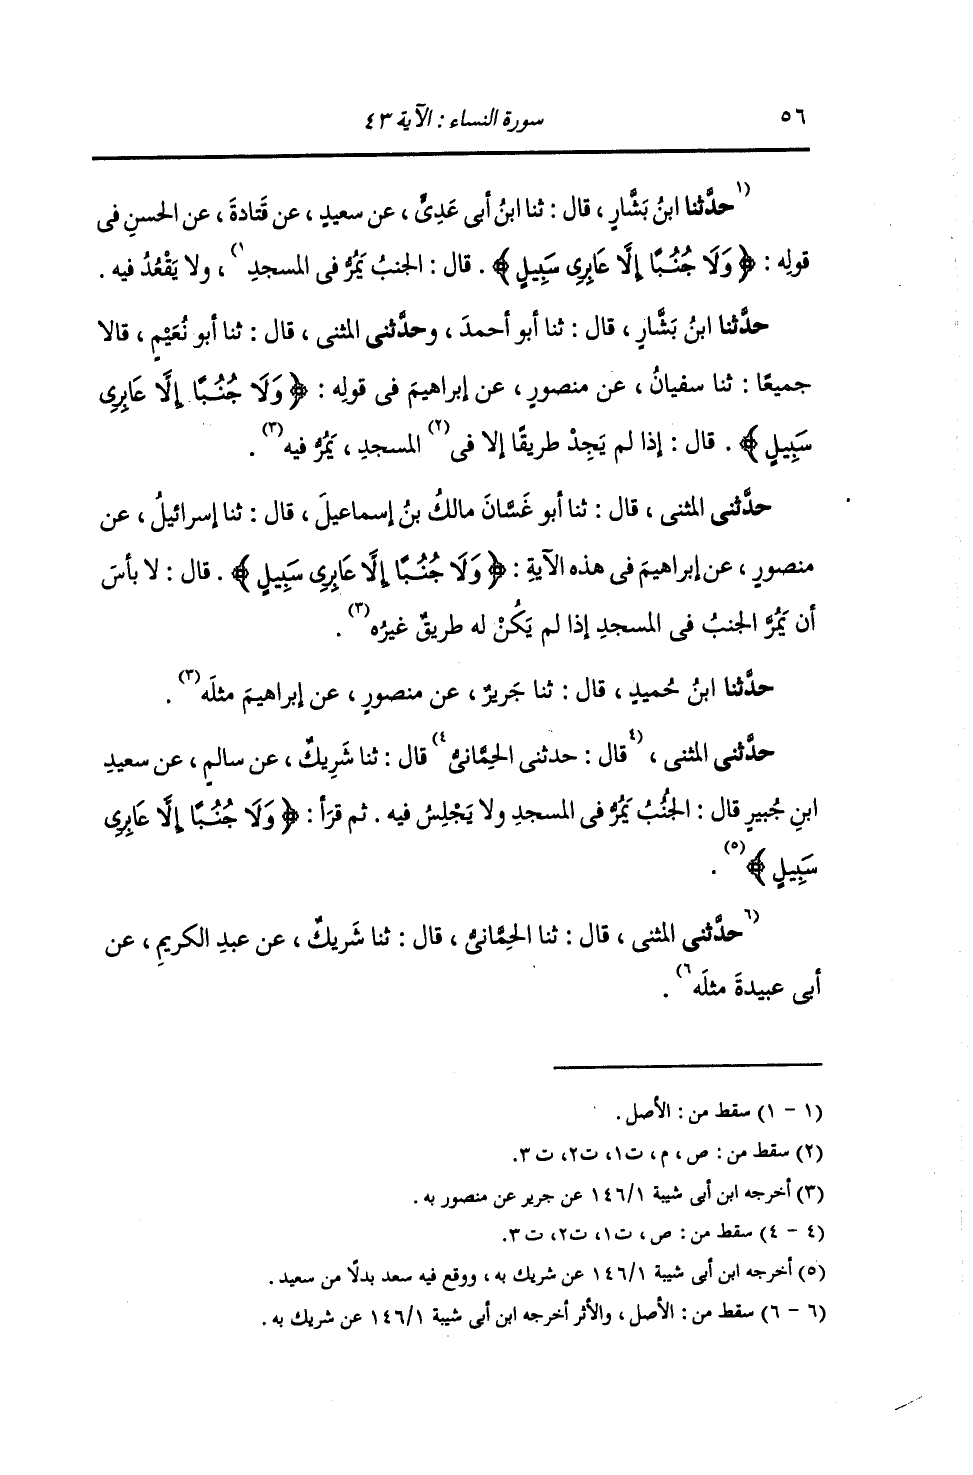 ٥٦
سورة النساء : الآية ٤٣
(١حدَّثنا ابنُ بَشَّارٍ ، قال : ثنا ابنُ أبى عَدِىٍّ ، عن سعيدٍ ، عن قَتادةَ ، عن الحسنِ فى
قولِه : ﴿ وَلَا جُنُبًا إِلَّا عَابِرِى سَبِيلٍ ﴾ . قال : الجنبُ يَمُرُّ فى المسجدِ ١) ، ولا يَقْعُدُ فيه .
حدَّثنا ابنُ بَشَّارٍ ، قال : ثنا أبو أحمدَ ، وحدَّثنى المثنى ، قال : ثنا أبو نُعَيْمٍ ، قالا
جميعًا : ثنا سفيانُ ، عن منصورٍ ، عن إبراهيمَ فى قولِه : ﴿ وَلَا جُنُبًا إِلَّا عَابِرِى
سَبِيلٍ ﴾ . قال : إذا لم يَجِدْ طريقًا إلا فى (٢) المسجدِ ، يَمُرُّ فيه (٣) .
حدَّثنى المثنى ، قال : ثنا أبو غَسَّانَ مالكُ بنُ إسماعيلَ ، قال : ثنا إسرائيلُ ، عن
منصورٍ ، عن إبراهيمَ فى هذه الآيةِ : ﴿ وَلَا جُنُبًا إِلَّا عَابِرِى سَبِيلٍ ﴾ . قال : لا بأسَ
أن يَمُرَّ الجنبُ فى المسجدِ إذا لم يَكُنْ له طريقٌ غيرُه (٣) .
حدَّثنا ابنُ حُميدٍ ، قال : ثنا جَريرٌ ، عن منصورٍ ، عن إبراهيمَ مثلَه (٣) .
حدَّثنى المثنى ، (٤قال : حدثنى الحِمَّانىُّ ٤) قال : ثنا شَرِيكٌ ، عن سالمٍ ، عن سعيدِ
ابنِ جُبيرٍ قال : الجُنُبُ يَمُرُّ فى المسجدِ ولا يَجْلِسُ فيه . ثم قرَأ : ﴿ وَلَا جُنُبًا إِلَّا عَابِرِى
سَبِيلٍ ﴾ (٥) .
(٦حدَّثنى المثنى ، قال : ثنا الحِمَّانىُّ ، قال : ثنا شَريكٌ ، عن عبدِ الكريمِ ، عن
أبى عبيدةَ مثلَه ٦) .
(١ - ١) سقط من : الأصل .
(٢) سقط من : ص ، م ، ت١، ت٢، ت ٣.
(٣) أخرجه ابن أبى شيبة ١٤٦/١ عن جرير عن منصور به .
(٤ - ٤) سقط من : ص ، ت١، ت٢، ت ٣.
(٥) أخرجه ابن أبى شيبة ١٤٦/١ عن شريك به ، ووقع فيه سعد بدلًا من سعيد .
(٦ - ٦) سقط من : الأصل ، والأثر أخرجه ابن أبى شيبة ١٤٦/١ عن شريك به .